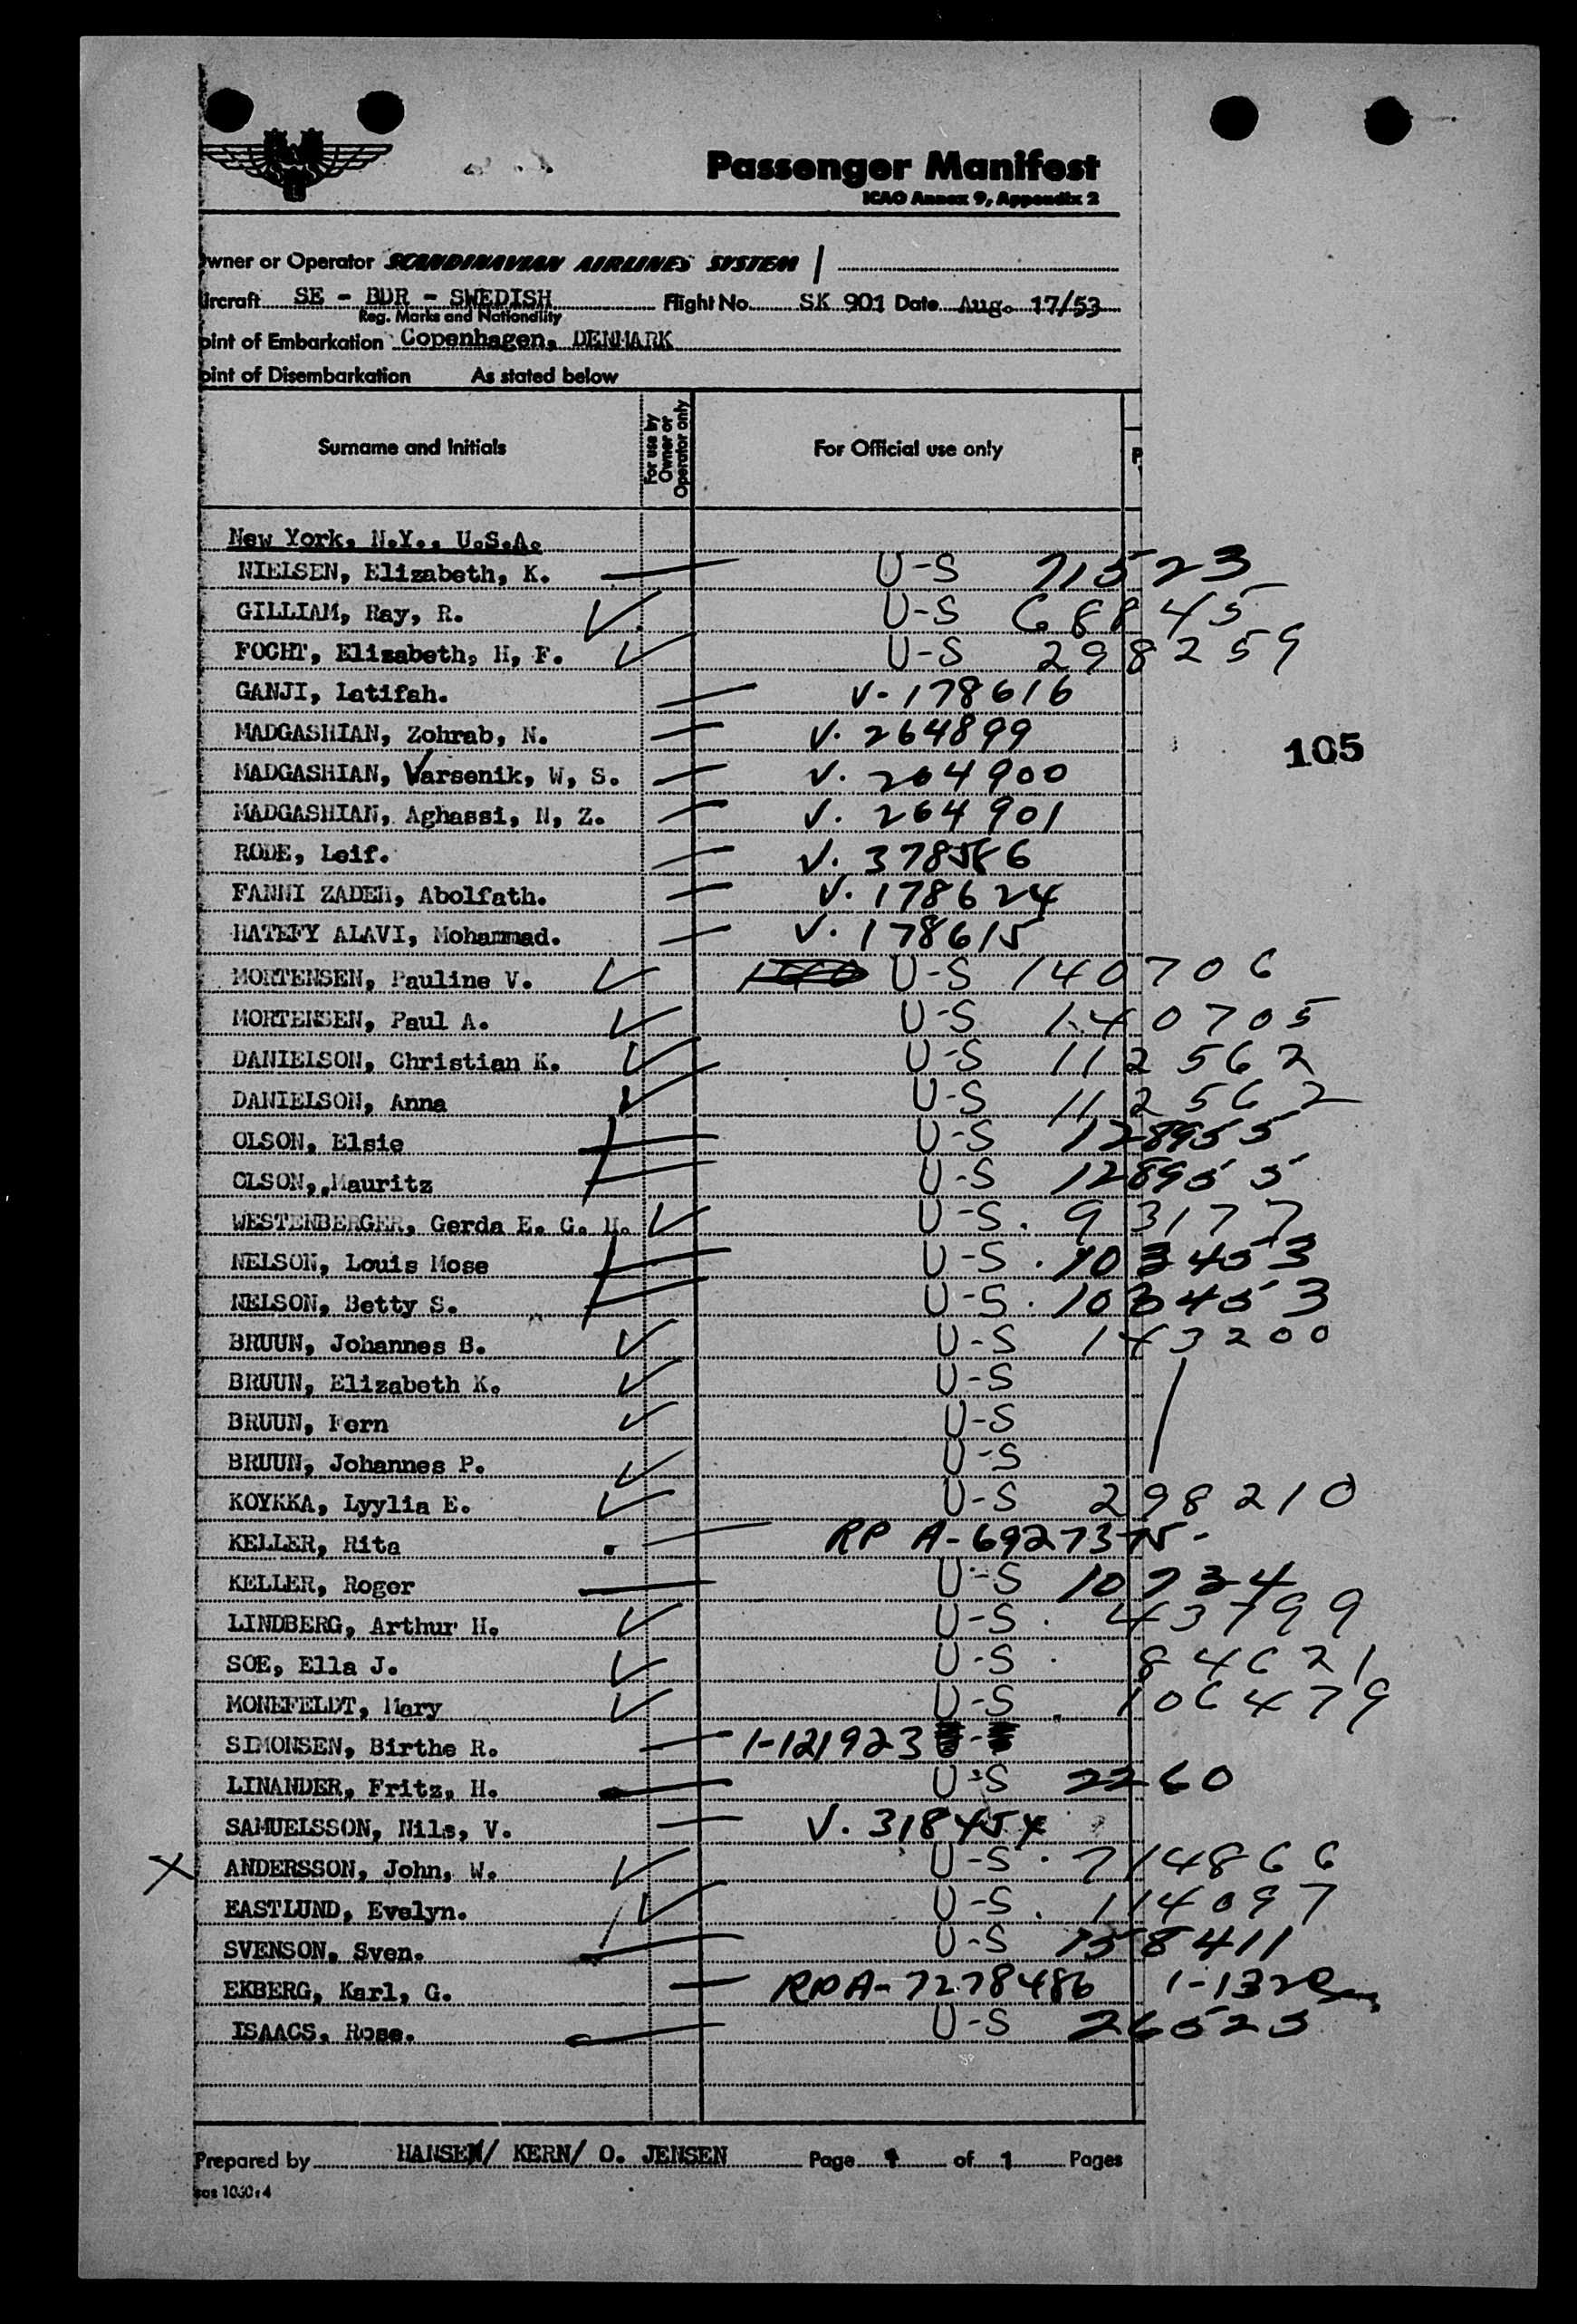 Passenger Manifest
ICAO Annex 9, Appendix 2
wner or Operator SCANDINAVIAN AIRLINES SYSTEM
ircraft SE - BDR - SWEDISH Flight No. SK 901 Date Aug. 17/53
Reg. Marks and Nationality
oint of Embarkation Copenhagen, DENMARK
oint of Disembarkation As stated below
Surname and Initials For use by Owner or Operator only For Official use only P
New York, N.Y., U.S.A.
NIELSEN, Elizabeth, K. U-S 715523
GILLIAM, Ray, R. U-S 688 45
FOCHT, Elizabeth, H, F. U-S 298259
GANJI, Latifah. V-178616
MADGASHIAN, Zohrab, N. V. 264899
105
MADGASHIAN, Varsenik, W, S. V. 264900
MADGASHIAN, Aghassi, N, Z. V. 264901
RODE, Leif. V. 378586
FANNI ZADEH, Abolfath. V. 178624
HATEFY ALAVI, Mohammad. V. 178615
MORTENSEN, Pauline V. U-S 140706
MORTENSEN, Paul A. U-S 140705
DANIELSON, Christian K. U-S 112562
DANIELSON, Anna U-S 112562
OLSON, Elsie U-S 128955
OLSON,,Mauritz U-S 128955
WESTENBERGER, Gerda E. G. H. U-S. 93177
NELSON, Louis Mose U-S. 103453
NELSON, Betty S. U-S. 103453
BRUUN, Johannes B. U-S 143200
BRUUN, Elizabeth K. U-S
BRUUN, Fern U-S
BRUUN, Johannes P. U-S
KOYKKA, Lyylia E. U-S 298210
KELLER, Rita RP A-6927375-
KELLER, Roger U-S 10734
LINDBERG, Arthur H. U-S. 43799
SOE, Ella J. U-S. 84621
MONEFELDT, Mary U-S. 106479
SIMONSEN, Birthe R. 1-121923
LINANDER, Fritz, H. U-S 2260
SAMUELSSON, Nils, V. V. 318454
X ANDERSSON, John, W. U-S. 714866
EASTLUND, Evelyn. U-S. 114097
SVENSON, Sven. U-S 158411
EKBERG, Karl, G. RPA-7278486 1-132
ISAACS, Rose. U-S 26523
Prepared by HANSEN/ KERN/ O. JENSEN Page 1 of 1 Pages
sas 1030:4